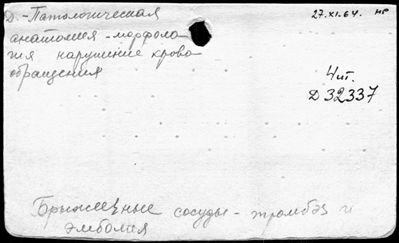 Д.-Патологическая
анатомия - морфоло-
гия нарушение крово
обращения
27.XI.64. НР
Чит.
Д 32337
Брыжеечные сосуды - тромбоз и
эмболия